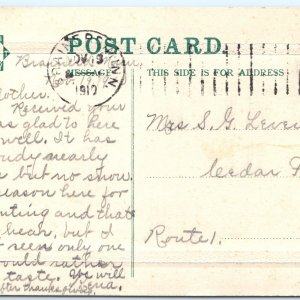 POST CARD.
MINN
1910
MESSAGE
THIS SIDE IS FOR ADDRESS
Received your
as glad to here
well. It has
nearly
but no snow.
eason here for
nting and that
hear, but I
seen only one
ould rather
taste. We will
after thanksgiving.
Mrs S. G.
Cedar
Route 1.